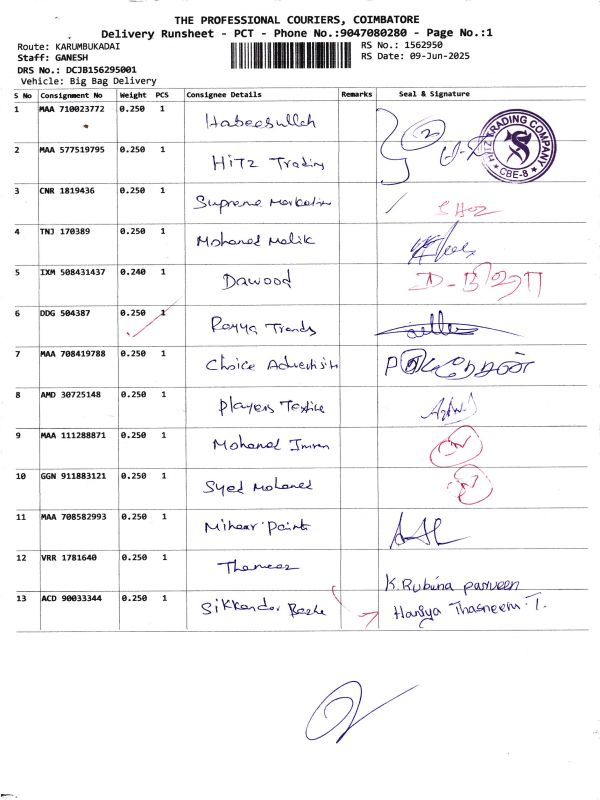 THE PROFESSIONAL COURIERS, COIMBATORE
Delivery Runsheet - PCT - Phone No.:9047080280 - Page No.:1
Route: KARUMBUKADAI RS No.: 1562950
Staff: GANESH RS Date: 09-Jun-2025
DRS No.: DCJB156295001
Vehicle: Big Bag Delivery
S No Consignment No Weight PCS Consignee Details Remarks Seal & Signature
1 MAA 710023772 0.250 1 Habeebullah 2
HITZ TRADING COMPANY CBE-8
2 MAA 577519795 0.250 1 HiTZ Trading
3 CNR 1819436 0.250 1 Supreme Marketin
4 TNJ 170389 0.250 1 Mohamed Malik
5 IXM 508431437 0.240 1 Dawood
6 DDG 504387 0.250 1 Ramya Trends
7 MAA 708419788 0.250 1 Choice Advertisin
8 AMD 30725148 0.250 1 Players Textile
9 MAA 111288871 0.250 1 Mohamed Imran
10 GGN 911883121 0.250 1 Syed Mohamed
11 MAA 708582993 0.250 1 Paints
12 VRR 1781640 0.250 1 Thameez K. Rubina parveen
13 ACD 90033344 0.250 1 Sikkandar Basha Haniya Thasneem. T.